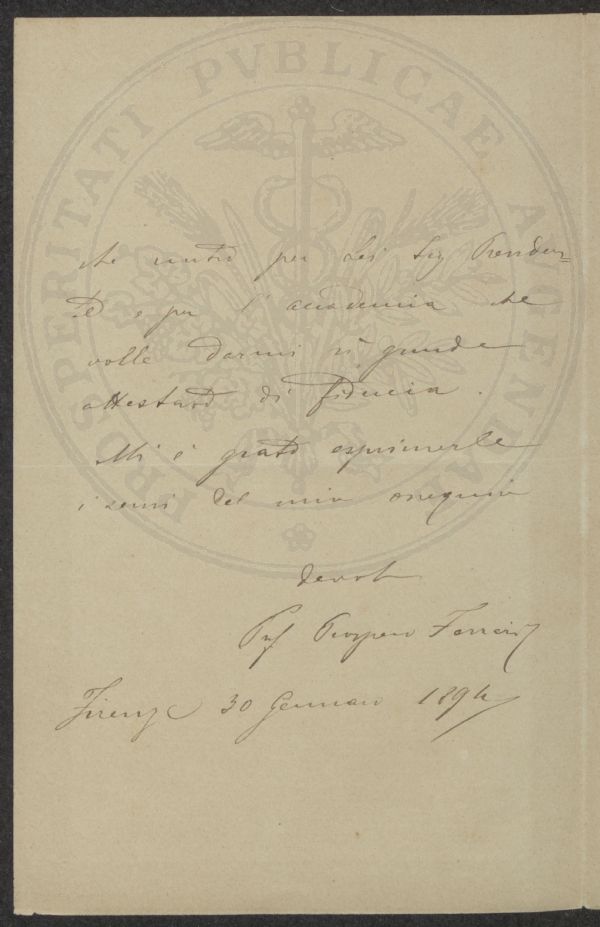 PROSPERITATI PVBLICAE AUGENDAE
che nutro per Lei Sig. Presiden=
te e per l'accademia che
volle darmi sì grande
attestato di fiducia.
Mi è grato esprimerle
i sensi del mio ossequio
devoto
Prof Prospero Ferrari
Firenze 30 Gennaio 1894